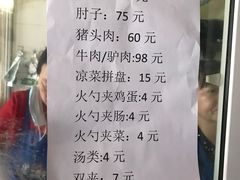 肘子：75 元
猪头肉：60 元
牛肉/驴肉:98 元
凉菜拼盘：15 元
火勺夹鸡蛋:4元
火勺夹肠:4元
火勺夹菜：4元
汤类:4 元
双夹：7 元